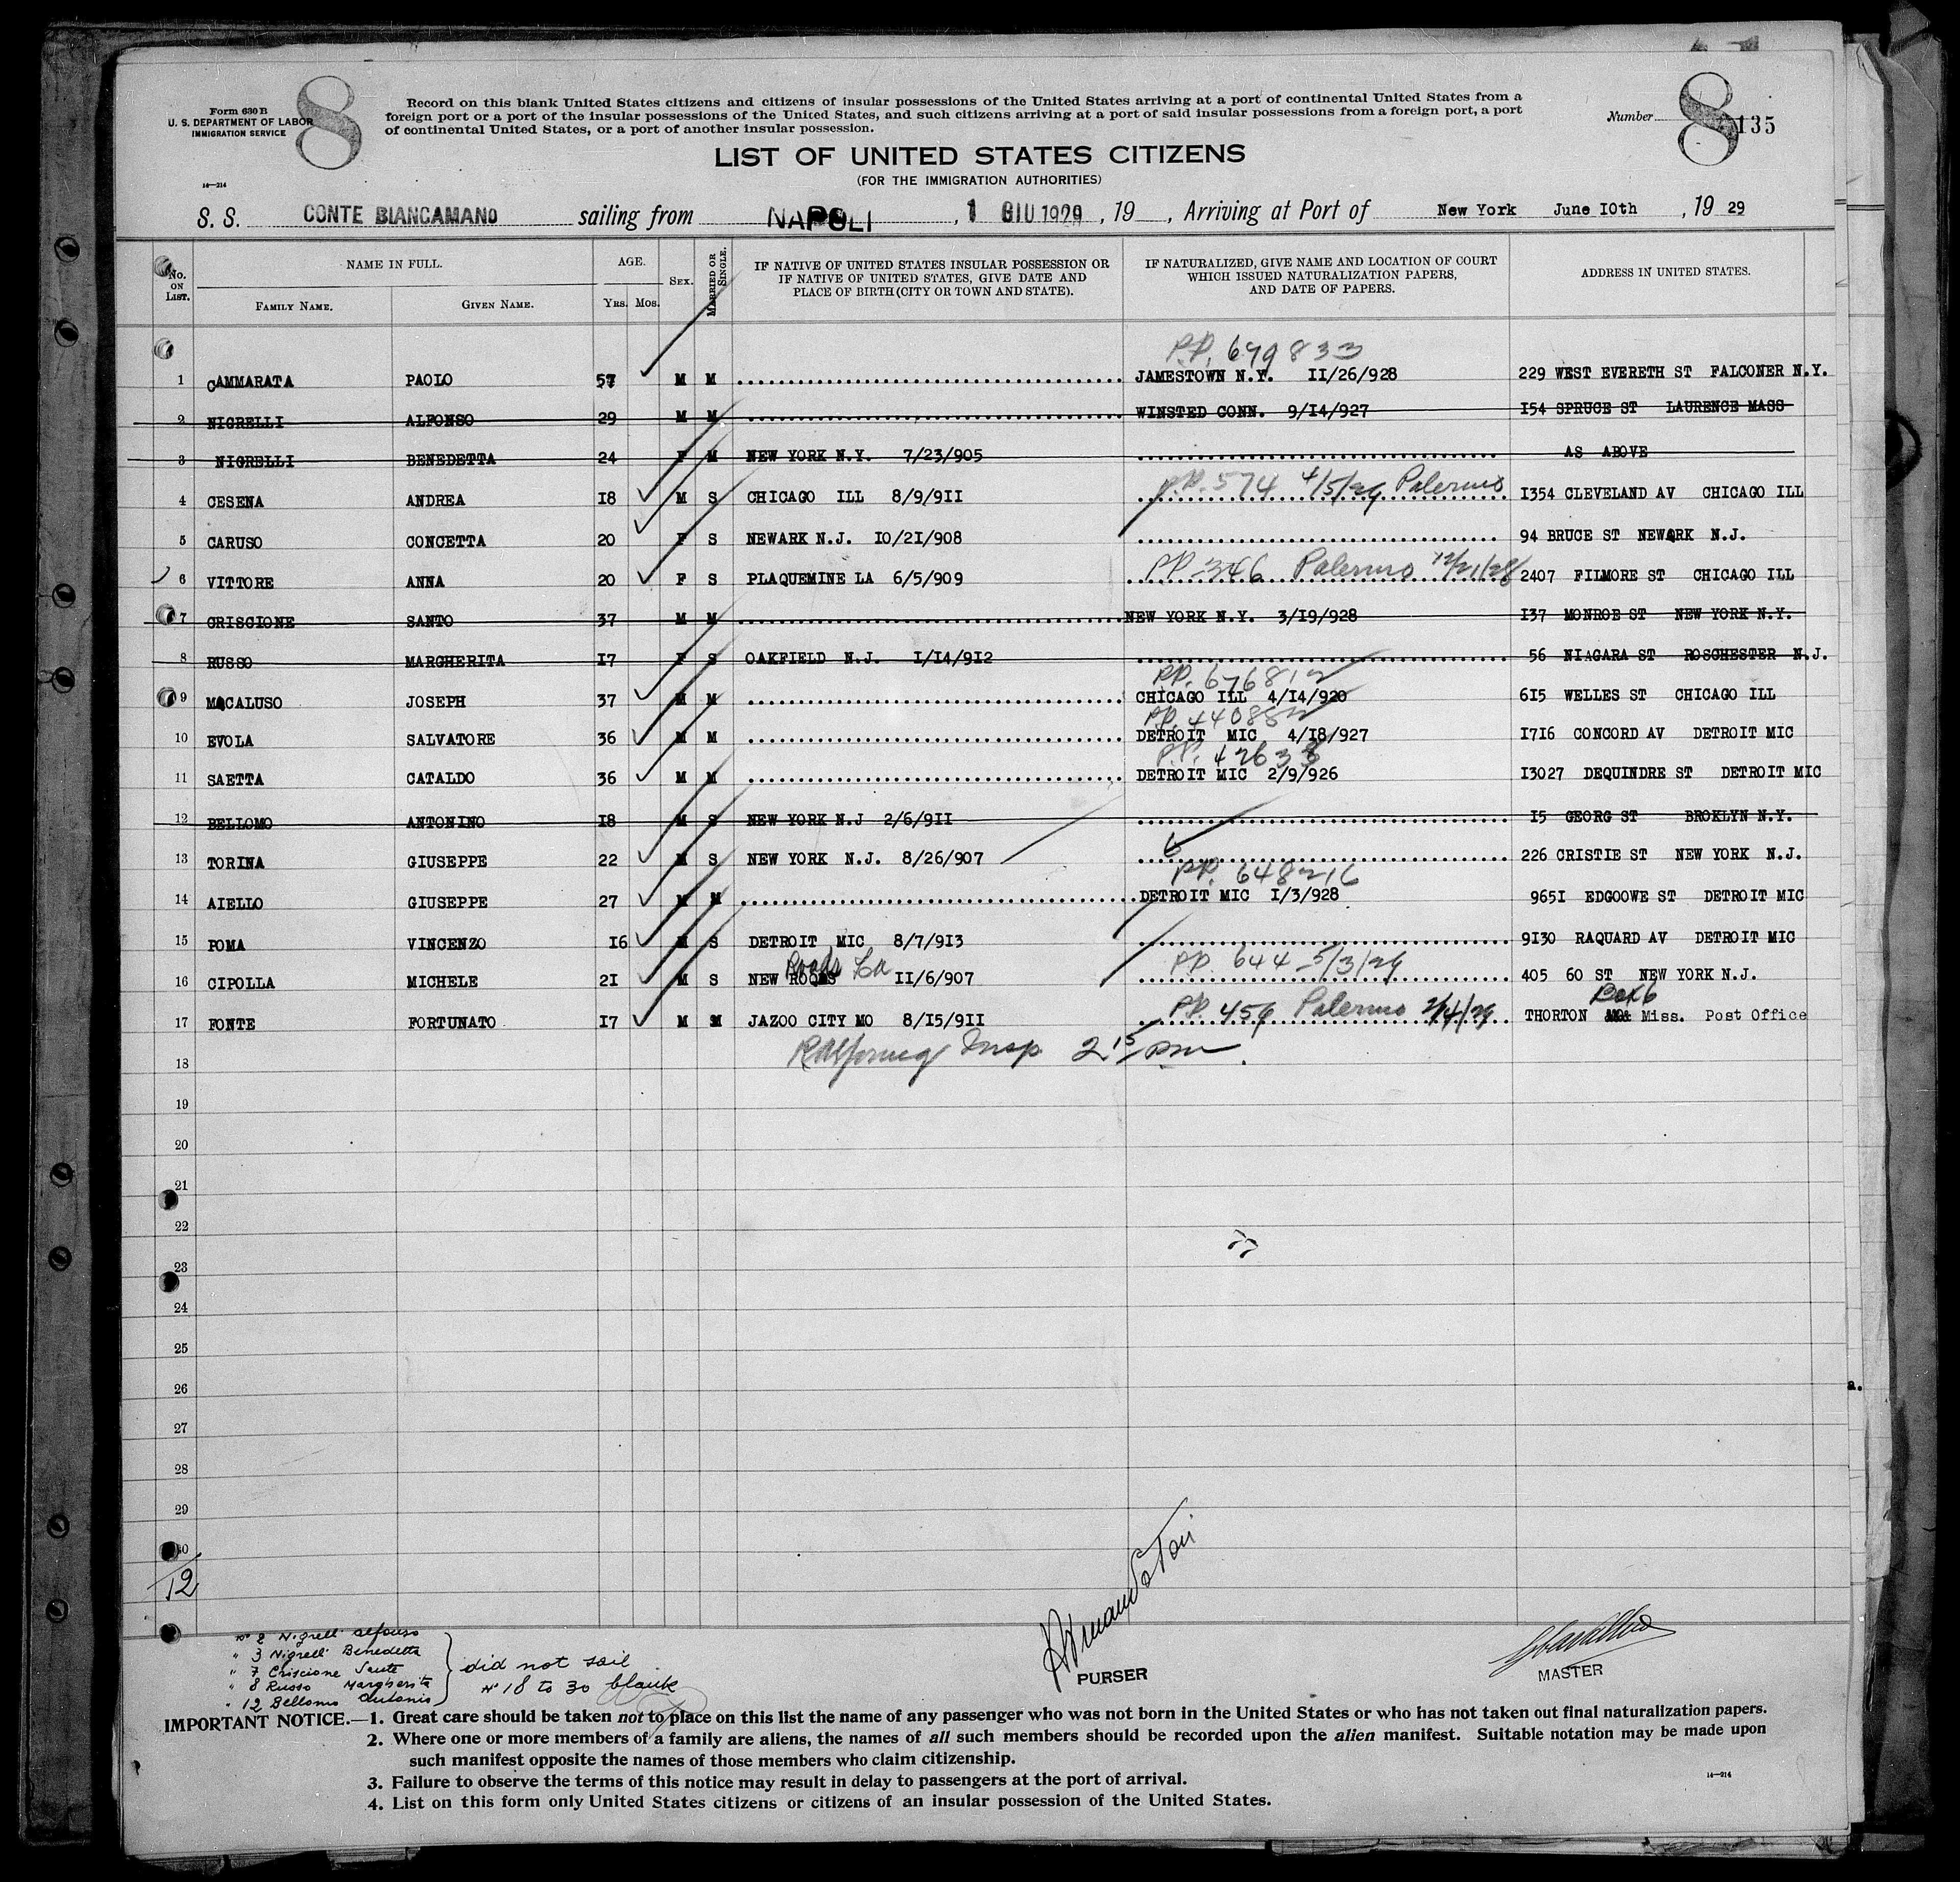 Form 630 B
U. S. DEPARTMENT OF LABOR
IMMIGRATION SERVICE
8
Record on this blank United States citizens and citizens of insular possessions of the United States arriving at a port of continental United States from a
foreign port or a port of the insular possessions of the United States, and such citizens arriving at a port of said insular possessions from a foreign port, a port
of continental United States, or a port of another insular possession.
Number 8 135
LIST OF UNITED STATES CITIZENS
(FOR THE IMMIGRATION AUTHORITIES)
14—214
S. S. CONTE BIANCAMANO sailing from NAPOLI, 1 GIU 1929, 19 , Arriving at Port of New York June 10th, 19 29
No. ON LIST. NAME IN FULL. AGE. SEX. MARRIED OR SINGLE. IF NATIVE OF UNITED STATES INSULAR POSSESSION OR IF NATIVE OF UNITED STATES, GIVE DATE AND PLACE OF BIRTH (CITY OR TOWN AND STATE). IF NATURALIZED, GIVE NAME AND LOCATION OF COURT WHICH ISSUED NATURALIZATION PAPERS, AND DATE OF PAPERS. ADDRESS IN UNITED STATES.
FAMILY NAME. GIVEN NAME. YRS. MOS.
P.P. 679833
1 CAMMARATA PAOLO 57 M M JAMESTOWN N.Y. II/26/928 229 WEST EVERETH ST FALCONER N.Y.
2 NIGRELLI ALFONSO 29 M M WINSTED CONN. 9/I4/927 I54 SPRUCE ST LAURENCE MASS
3 NIGRELLI BENEDETTA 24 F M NEW YORK N.Y. 7/23/905 AS ABOVE
4 CESENA ANDREA I8 M S CHICAGO ILL 8/9/9II P.P. 574 4/5/29 Palermo I354 CLEVELAND AV CHICAGO ILL
5 CARUSO CONCETTA 20 F S NEWARK N.J. I0/2I/908 94 BRUCE ST NEWARK N.J.
6 VITTORE ANNA 20 F S PLAQUEMINE LA 6/5/909 PP 346 Palermo 12/21/28 2407 FILMORE ST CHICAGO ILL
7 CRISCIONE SANTO 37 M M NEW YORK N.Y. 3/I9/928 I37 MONROE ST NEW YORK N.Y.
8 RUSSO MARGHERITA I7 F S OAKFIELD N.J. I/I4/9I2 56 NIAGARA ST ROSCHESTER N.J.
PP. 676812
9 MACALUSO JOSEPH 37 M M CHICAGO ILL 4/I4/920 6I5 WELLES ST CHICAGO ILL
PP. 440882
10 EVOLA SALVATORE 36 M M DETROIT MIC 4/I8/927 I7I6 CONCORD AV DETROIT MIC
P.P. 42633
11 SAETTA CATALDO 36 M M DETROIT MIC 2/9/926 I3027 DEQUINDRE ST DETROIT MIC
12 BELLOMO ANTONINO I8 M S NEW YORK N.J 2/6/9II I5 GEORG ST BROKLYN N.Y.
13 TORINA GIUSEPPE 22 M S NEW YORK N.J. 8/26/907 226 CRISTIE ST NEW YORK N.J.
PP. 648216
14 AIELLO GIUSEPPE 27 M M DETROIT MIC I/3/928 965I EDGOOWE ST DETROIT MIC
15 POMA VINCENZO I6 M S DETROIT MIC 8/7/9I3 9I30 RAQUARD AV DETROIT MIC
Roads La
16 CIPOLLA MICHELE 2I M S NEW ROODS II/6/907 PP 644 5/3/29 405 60 ST NEW YORK N.J.
Box 6
17 FONTE FORTUNATO I7 M M JAZOO CITY MO 8/I5/9II PP. 456 Palermo 2/4/29 THORTON Miss. Post Office
Insp 2 15 pm.
18
19
20
21
22
23
24
25
26
27
28
29
30
12
No 2 Nigrelli Alfonso
" 3 Nigrelli Benedetta
" 7 Criscione Santo
" 8 Russo Margherita
" 12 Bellomo Antonio
did not sail
No 18 to 30 blank
PURSER
MASTER
IMPORTANT NOTICE.—1. Great care should be taken not to place on this list the name of any passenger who was not born in the United States or who has not taken out final naturalization papers.
2. Where one or more members of a family are aliens, the names of all such members should be recorded upon the alien manifest. Suitable notation may be made upon
such manifest opposite the names of those members who claim citizenship.
3. Failure to observe the terms of this notice may result in delay to passengers at the port of arrival.
14—214
4. List on this form only United States citizens or citizens of an insular possession of the United States.